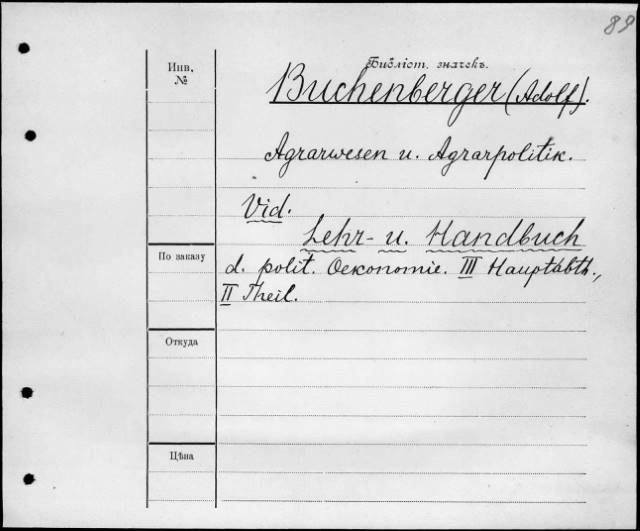 89
Библіот. значекъ.
Инв.
№
Buchenberger (Adolf).
Agrarwesen u. Agrarpolitik.
Vid.
Lehr- u. Handbuch
По заказу
d. polit. Oekonomie. III Hauptabth.,
II Theil.
Откуда
Цѣна